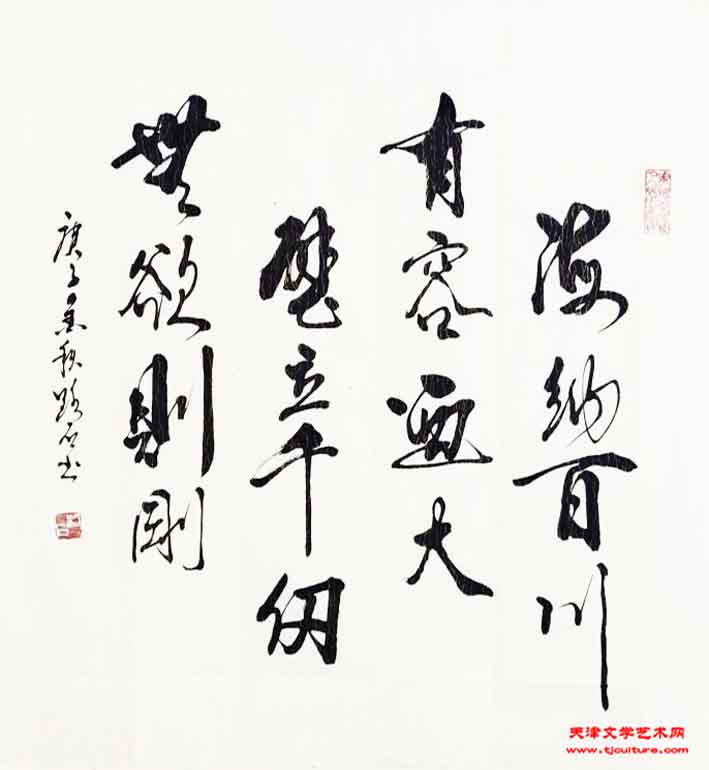 海納百川
有容迺大
壁立千仞
無欲則剛
庚子秋石书
天津文学艺术网
www.tjculture.com